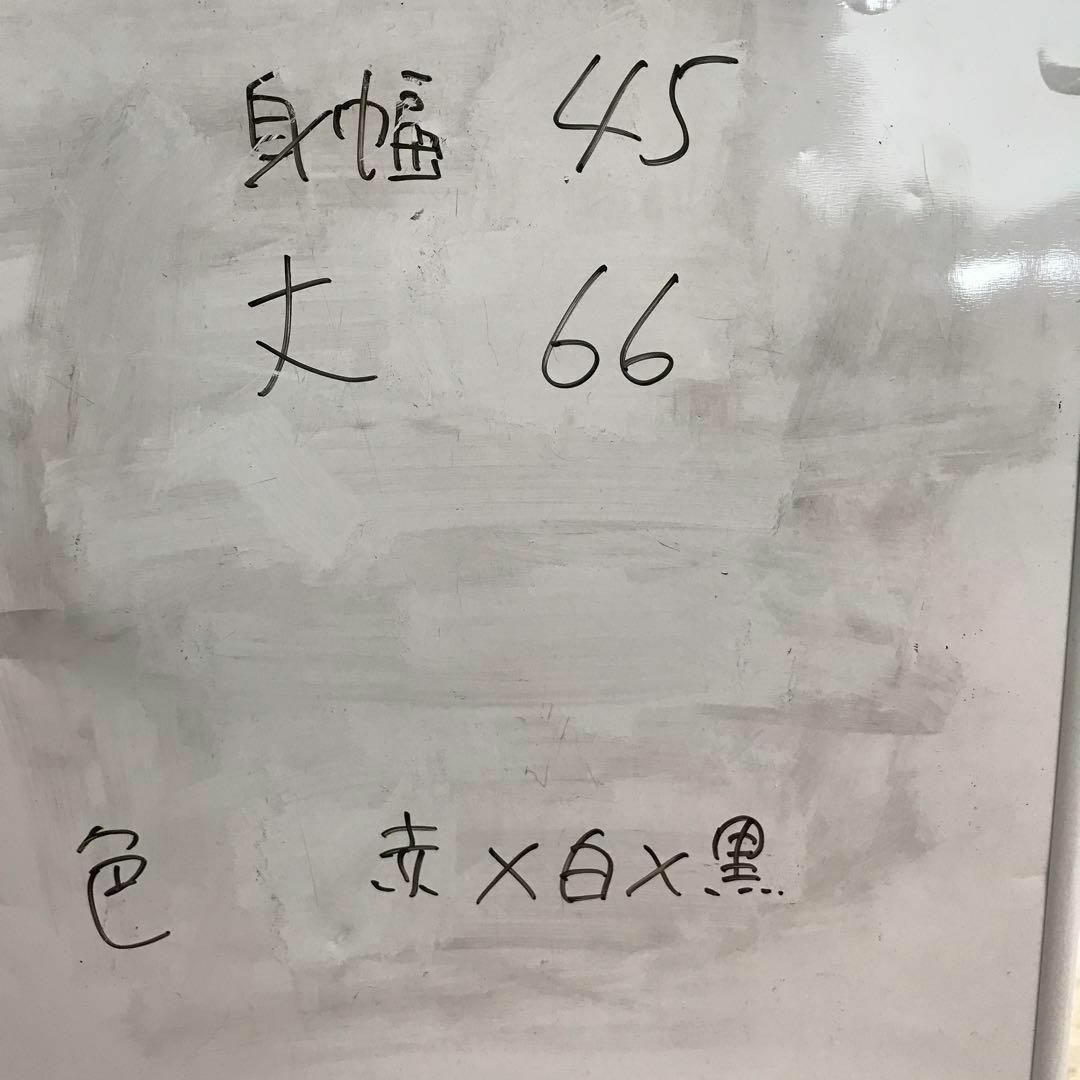 身幅 45
丈 66
色 赤×白×黒